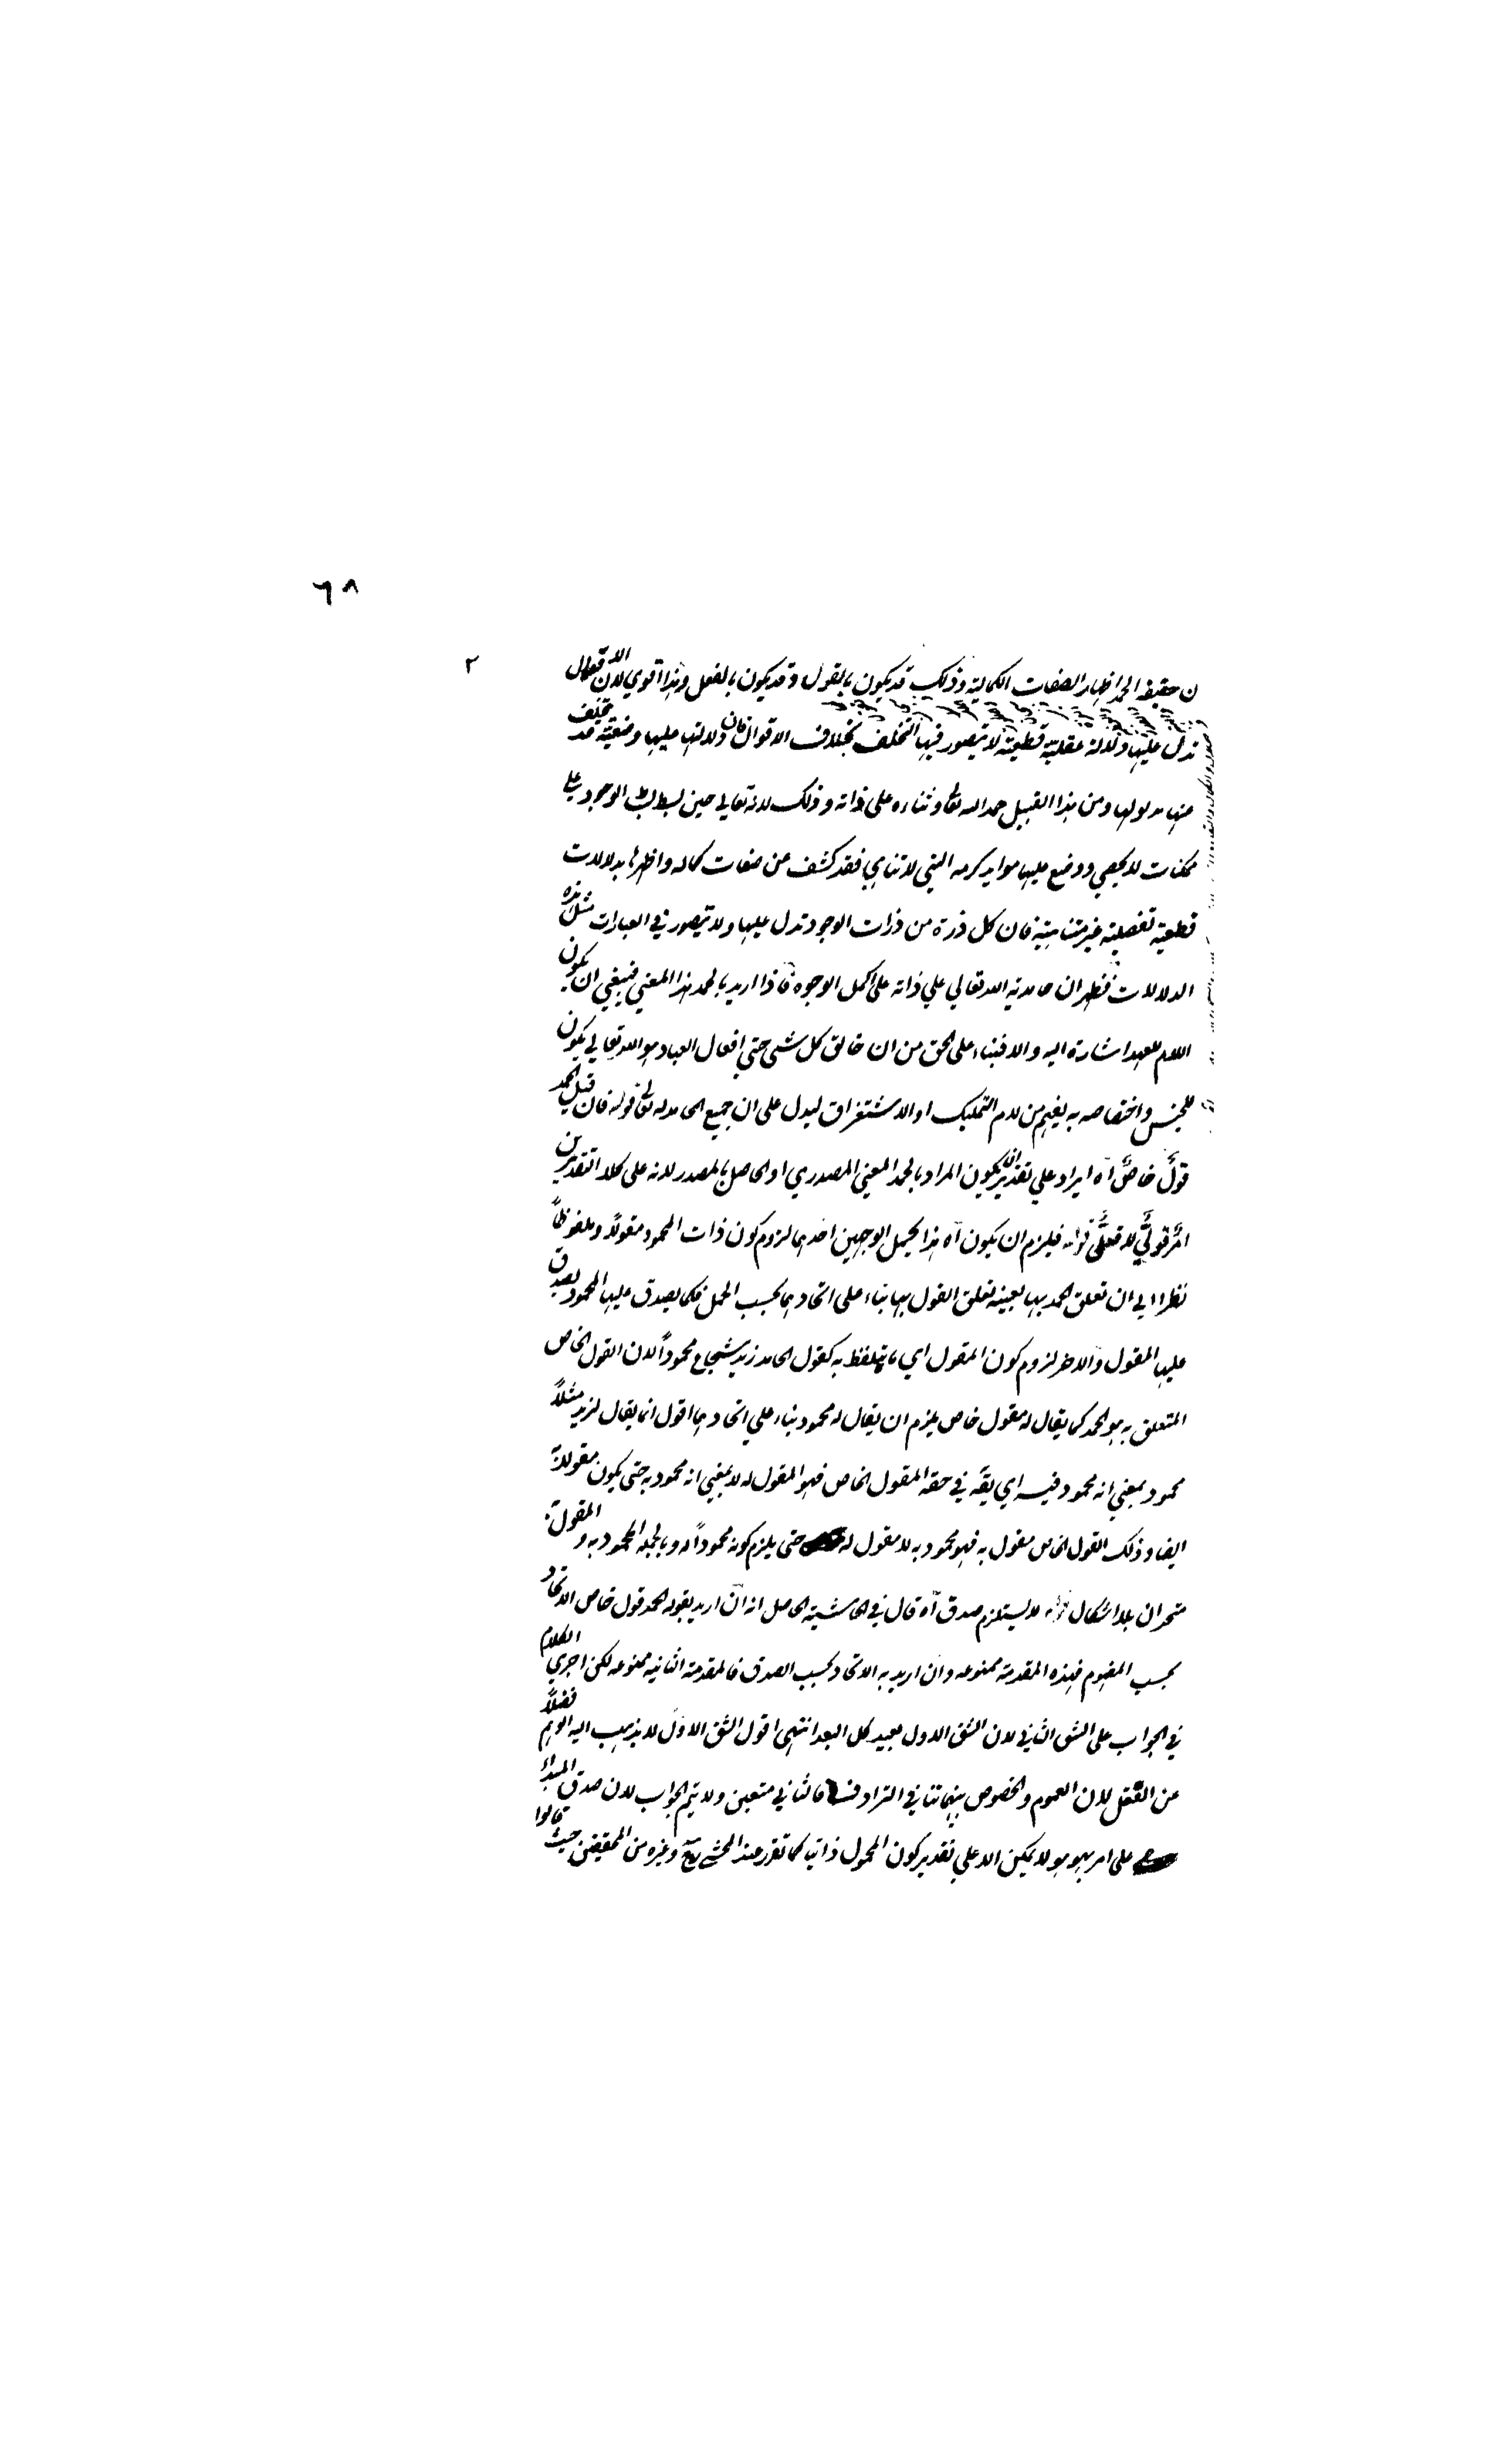 ٦٨
٢
ن حقيقة الحمد اظهار الصفات الكمالية وذلك قد يكون بالقول وقد يكون بالفعل وهذا اقوي لان الافعال
تدل عليها دلالة عقلية قطعية لا يتصور فيها التخلف بخلاف الاقوال فان دلالتها عليها وضعية قد يتخلف
عنها مدلولها ومن هذا القبيل حمد الله تعالى وثناءه على ذاته وذلك لانه تعالي حين بسط بساط الوجود على
ممكنات لا يحصي ووضع عليها موايد كرمه التي لا تتناهي فقد كشف عن صفات كماله واظهرها بدلالات
قطعية تفصيلية غير متناهية فان كل ذرة من ذرات الوجود تدل عليها ولا يتصور في العبارات مثل هذه
الدلالات فظهر ان حامدية الله تعالي علي ذاته على اكمل الوجوه فاذا اريد بالحمد هذا المعني فينبغي ان يكون
اللام للعهد اشارة اليه والا فبناء على الحق من ان خالق كل شي حتي افعال العباد هو الله تعالي يكون
للجنس واختصاصه به يفهم من لام التمليك او الاستغراق ليدل على ان جميع المحامد له تعالى قوله فان قيل الحمد
قول خاص آه ايراد علي تقدير ان يكون المراد بالحمد المعني المصدري او الحاصل بالمصدر لانه على كلا التقديرين
امر قولي لا فعلي قوله فيلزم ان يكون آه هذا يحتمل الوجهين احدهما لزوم كون ذات المحمود مقولا وملفوظا
نظرا الي ان تعلق الحمد بها بعينه تعلق القول بها بناء على اتحادهما بحسب الحمل فكما يصدق عليها المحمود يصدق
عليها المقول والاخر لزوم كون المقول اي ما يتلفظ به كقول الحامد زيد شجاع محمودا لان القول الخاص
المتعلق به هو الحمد كما يقال له مقول خاص يلزم ان يقال له محمود بناء علي اتحادهما اقول انما يقال لزيد مثلا
محمود بمعني انه محمود فيه اي يقه في حقه المقول الخاص فهو المقول له لا بمعني انه محمود به حتى يكون مقولا
ايضا وذلك القول الخاص مقول به فهو محمود به لا مقول له حتى يلزم كونه محمودا له وبالجملة المحمود به والمقول به
متحدان بلا اشكال قوله لا يستلزم صدق آه قال في الحاشية الحاصل انه ان اريد بقوله الحمد قول خاص الاتحاد
بحسب المفهوم فهذه المقدمة ممنوعه وان اريد به الاتحاد بحسب الصدق فالمقدمة الثانيه ممنوعه لكن اجري الكلام
في الجواب على الشق الثاني لان الشق الاول بعيد كل البعد انتهى اقول الشق الاول لا يذهب اليه الوهم فضلا
عن العقل لان العموم والخصوص بينهما تنافي الترادف فالثاني متعين ولا يتم الجواب لان صدق المبدأ
على امر بهو هو لا يمكن الا علي تقدير كون المحمول ذاتيا كما تقرر عند المحشي وغيره من المحققين حيث قالوا